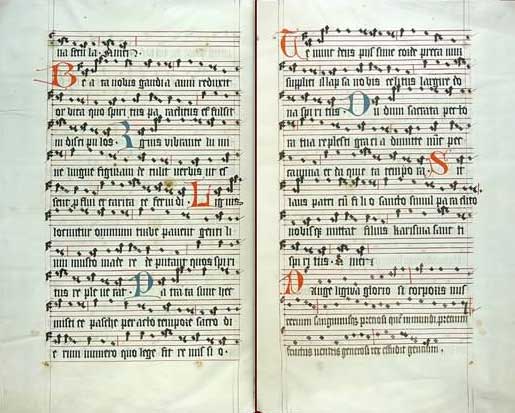 na secu la. Amen.
B e a ta nobis gaudia anni reduxit
or bita quo spiri tus pa raclitus ef fulsit
in disci pu los. I gnis vibrante lu mi
ne lingue figuram de tulit verbis ut es
sent pro flui et carita te fer vidi. L inguis
locuntur omnium turbe pavent genti li
um musto made re de putant quos spiri
tus re ple ve rat. P a trata sunt hec
misti ce pasche per acto tempore sacro di
e rum numero quo lege fit re mis si o.
T e nunc deus pi is sime cor de preca mur
supplici il lap sa no bis celitus largire do
na spi ri tus. D u dum sacrata pec to
ra tua replesti gra ci a dimitte nunc pec
camina et da qui e ta tempo ra. S it
laus patri cum fi li o sancto simul pa ra clito
nobisque mittat filius karisma sanc ti
spi ri tus. A men.
P ange lingwa glorio si corporis mis
terium sanguinisque preciosi quem in mundi precium
fructus ventris generosi rex effudit gencium.